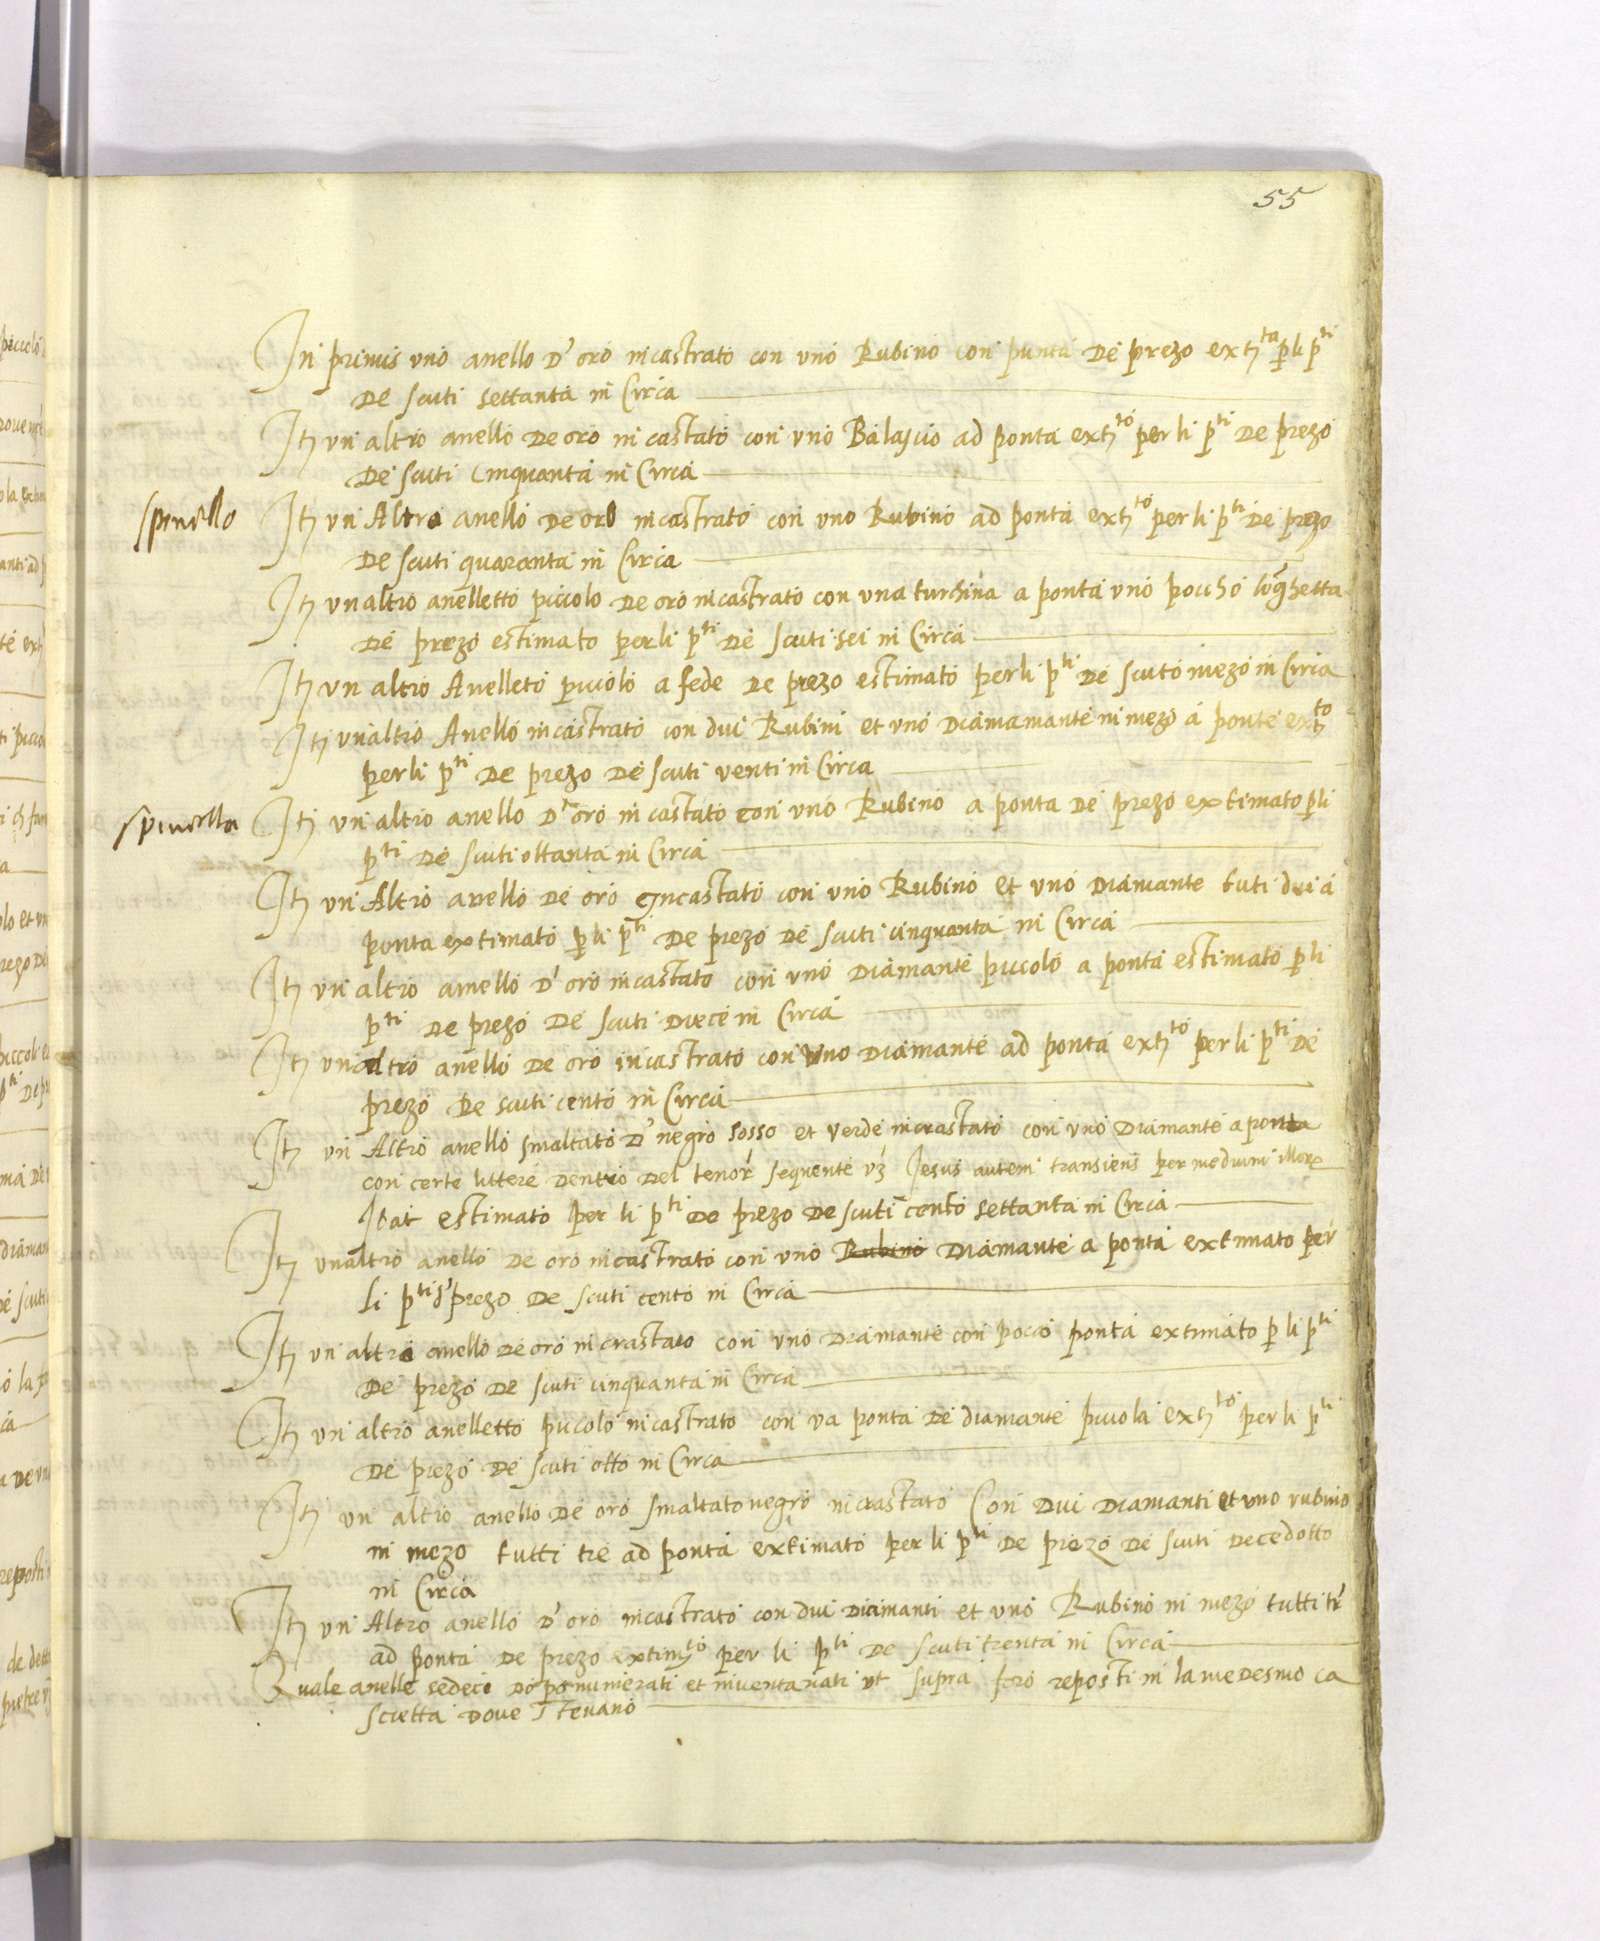 55
In primis uno anello d' oro incastrato con uno Rubino con punta de prezo ext^ta p li p^ti
de scuti settanta in Circa
Itj un altro anello de oro in castato con uno Balascio ad ponta extj^to per li p^ti de prezo
de scuti Cinquanta in Circa
spinello
Itj un Altro anello de oro incastrato con uno Rubino ad ponta extj^to per li p^ti de prezo
de scuti quaranta in Circa
Itj un altro anelletto piccolo de oro incastrato con una turchina a ponta uno poccho longhetta
de prezo estimato per li p^ti de scuti sei in Circa
Itj un altro Anelleto piccolo a fede de prezo estimato per li p^ti de scuto mezo in Circa
Itj un altro Anello incastrato con dui Rubini et uno Diamamante in mezo a ponte ext^to
per li p^ti de prezo de scuti venti in Circa
spinella
Itj un altro anello d' oro in castato con uno Rubino a ponta de prezo extimato p li
p^ti de scuti ottanta in Circa
Itj un Altro anello de oro Incastato con uno Rubino et uno Diamante tuti dui a
ponta extimato p li p^ti de prezo de scuti cinquanta in Circa
Itj un altro anello d' oro incastato con uno Diamante piccolo a ponta estimato p li
p^ti de prezo de scuti diece in Circa
Itj un altro anello de oro incastrato con uno Diamante ad ponta extj^to per li p^ti de
prezo de scuti cento in Circa
Itj un Altro anello smaltato d' negro rosso et verde incrastato con uno Diamante a ponta
con certe littere dentro del tenor' sequente vz Jesus autem transiens per medium illorz
Ibat estimato per li p^ti de prezo de scuti cento settanta in Circa
Itj un altro anello de oro incastrato con uno Rubino Diamante a ponta extimato per
li p^ti d' prezo de scuti cento in Circa
Itj un altro anello de oro incrastato con uno Diamante con pocco ponta extimato p li p^ti
de prezo de scuti cinquanta in Circa
Itj un altro anelletto piccolo incastrato con va ponta de diamante piccola extj^to per li p^ti
de prezo de scuti otto in Circa
Itj un altro anello de oro smaltato negro incrastato Con dui diamanti et uno rubino
in mezo tutti tre ad ponta extimato per li p^ti de prezo de scuti decedotto
in Circa
Itj un Altro anello d' oro incastrato con dui Diamanti et uno Rubino in mezo tutti tr'
ad ponta de prezo extim^to per li p^ti de scuti trenta in Circa
Quale anelle sedeci numerati et inventariati ut supra foro reposti in la medesmo ca
scietta dove stevano